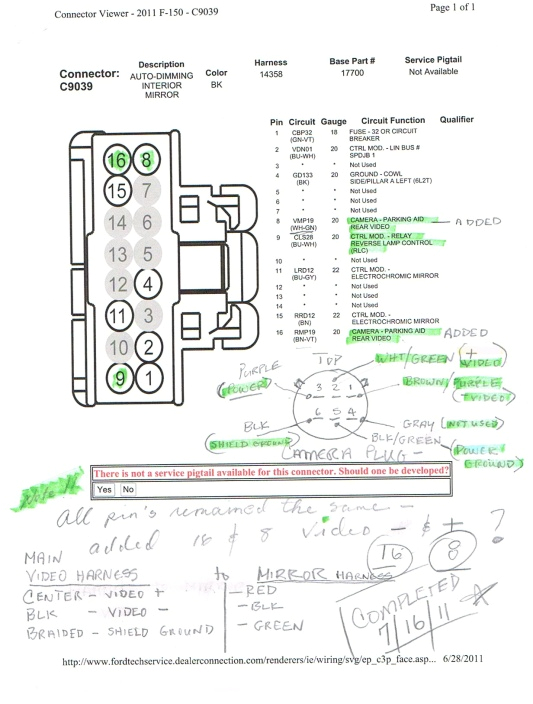 Connector Viewer - 2011 F-150 - C9039 Page 1 of 1
Connector: C9039
Description AUTO-DIMMING INTERIOR MIRROR
Color BK
Harness 14358
Base Part # 17700
Service Pigtail Not Available
Pin Circuit Gauge Circuit Function Qualifier
1 CBP32 (GN-VT) 18 FUSE - 32 OR CIRCUIT BREAKER
2 VDN01 (BU-WH) 20 CTRL MOD. - LIN BUS # SPDJB 1
3 * * Not Used
4 GD133 (BK) 20 GROUND - COWL SIDE/PILLAR A LEFT (6L2T)
5 * * Not Used
6 * * Not Used
7 * * Not Used
8 VMP19 (WH-GN) 20 CAMERA - PARKING AID REAR VIDEO — ADDED
9 CLS28 (BU-WH) 20 CTRL MOD. - RELAY REVERSE LAMP CONTROL (RLC)
10 * * Not Used
11 LRD12 (BU-GY) 22 CTRL MOD. - ELECTROCHROMIC MIRROR
12 * * Not Used
13 * * Not Used
14 * * Not Used
15 RRD12 (BN) 22 CTRL MOD. - ELECTROCHROMIC MIRROR
16 RMP19 (BN-VT) 20 CAMERA - PARKING AID REAR VIDEO ADDED
16 8
15 7
14 6
13 5
12 4
11 3
10 2
9 1
TOP
PURPLE (POWER)
WHT/GREEN (+ VIDEO)
BROWN/PURPLE (- VIDEO)
3 2 1
6 5 4
BLK (SHIELD GROUND)
GRAY (NOT USED)
BLK/GREEN (POWER GROUND)
CAMERA PLUG -
There is not a service pigtail available for this connector. Should one be developed?
Yes No
all pin's remained the same -
added 16 & 8 Video - & + ?
16 8
MAIN
VIDEO HARNESS to MIRROR HARNESS
CENTER - VIDEO + — RED
BLK - VIDEO - — BLK
BRAIDED - SHIELD GROUND — GREEN
COMPLETED
7/16/11
http://www.fordtechservice.dealerconnection.com/renderers/ie/wiring/svg/ep_c3p_face.asp... 6/28/2011